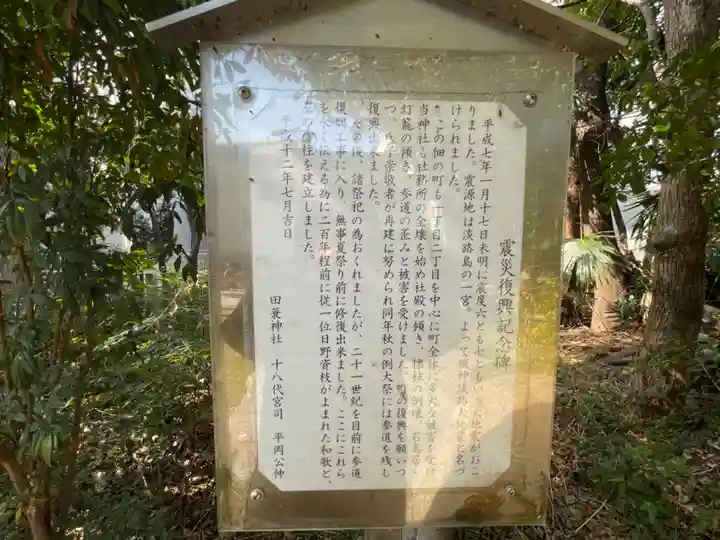 震災復興記念碑
平成七年一月十七日未明に震度六とも七とも 大地震がおこ
りました。震源地は淡路島の一宮。よって阪神淡路大震災と名づ
けられました。
この佃の町も一丁目二丁目を中心に町全体が 大な被害を受け
当神社も社務所の全壊を始め社殿の傾き、標柱の倒壊、石鳥居
灯籠の傾き、参道の歪みと被害を受けました。町の復興を願いつ
つ、氏子崇敬者が再建に努められ同年秋の例大祭には参道を残し
復興出来ました。
その後、諸祭祀の為おくれましたが、二十一世紀を目前に参道
復興工事に入り、無事夏祭り前に修復出来ました。ここにこれら
を永く伝える為に二百年程前に従一位日野資枝がよまれた和歌と、
の標柱を建立しました。
平成十二年七月吉日
田蓑神社 十八代宮司 平岡公仲